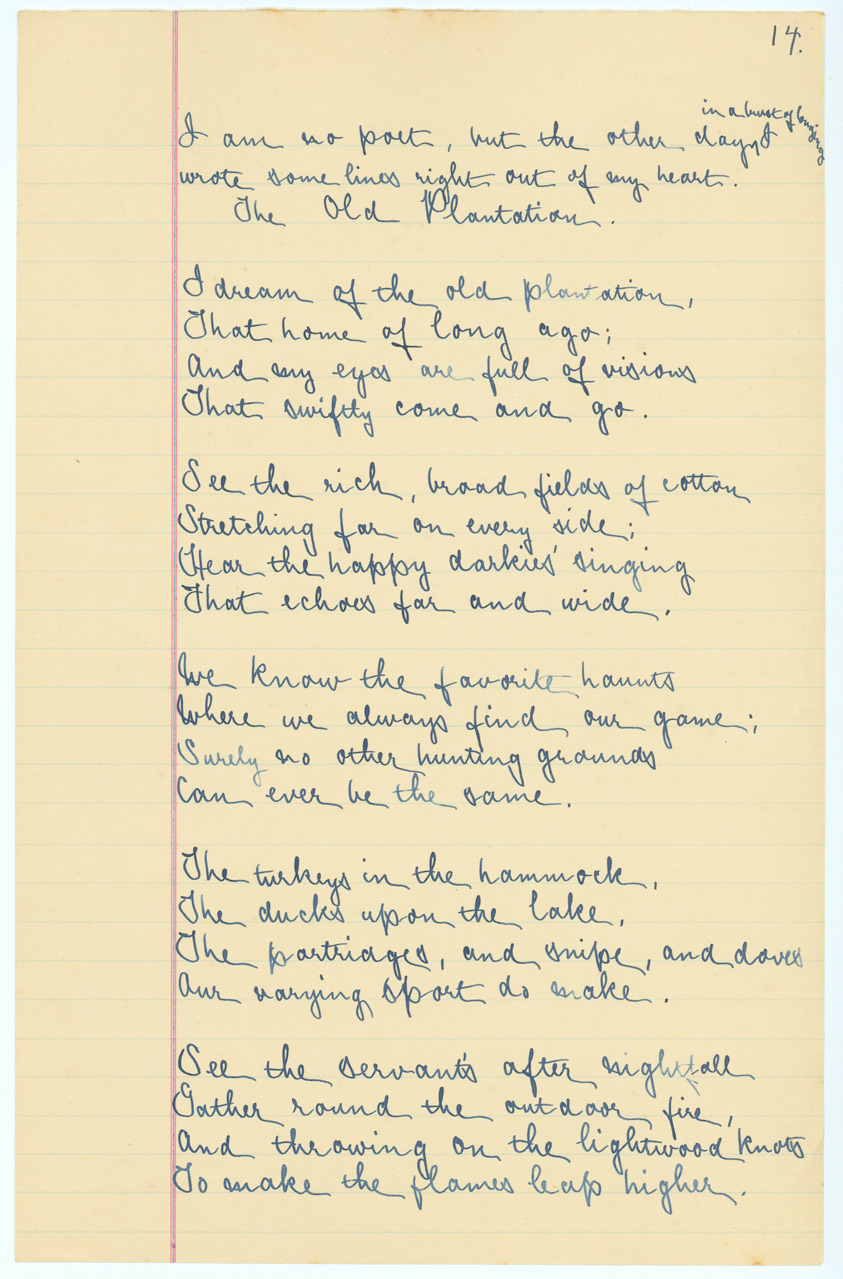 14.
in a burst of longing
I am no poet, but the other day, I
wrote some lines right out of my heart.
The Old Plantation.
I dream of the old plantation,
That home of long ago;
And my eyes are full of visions
That swiftly come and go.
See the rich, broad fields of cotton
Stretching far on every side;
Hear the happy darkies' singing
That echoes far and wide.
We know the favorite haunts
Where we always find our game;
Surely no other hunting grounds
Can ever be the same.
The turkeys in the hammock,
The ducks upon the lake,
The partridges, and snipe, and doves
Our varying sport do make.
See the servants after nightfall
Gather round the outdoor fire,
And throwing on the lightwood knots
To make the flames leap higher.